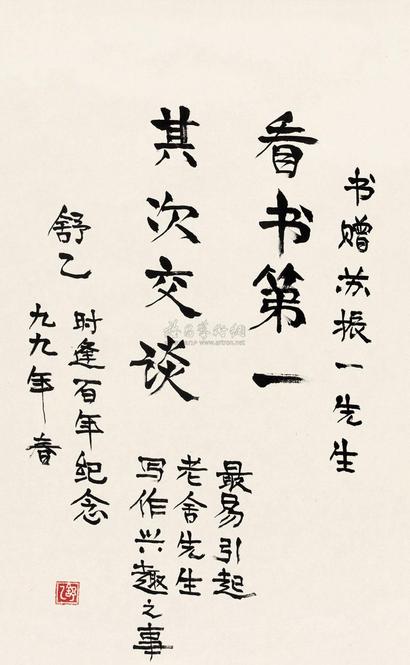 书赠苏振一先生
看书第一
其次交谈
最易引起
老舍先生
写作兴趣之事
时逢百年纪念
舒乙
九九年春
雅昌藝術網
www.artron.net